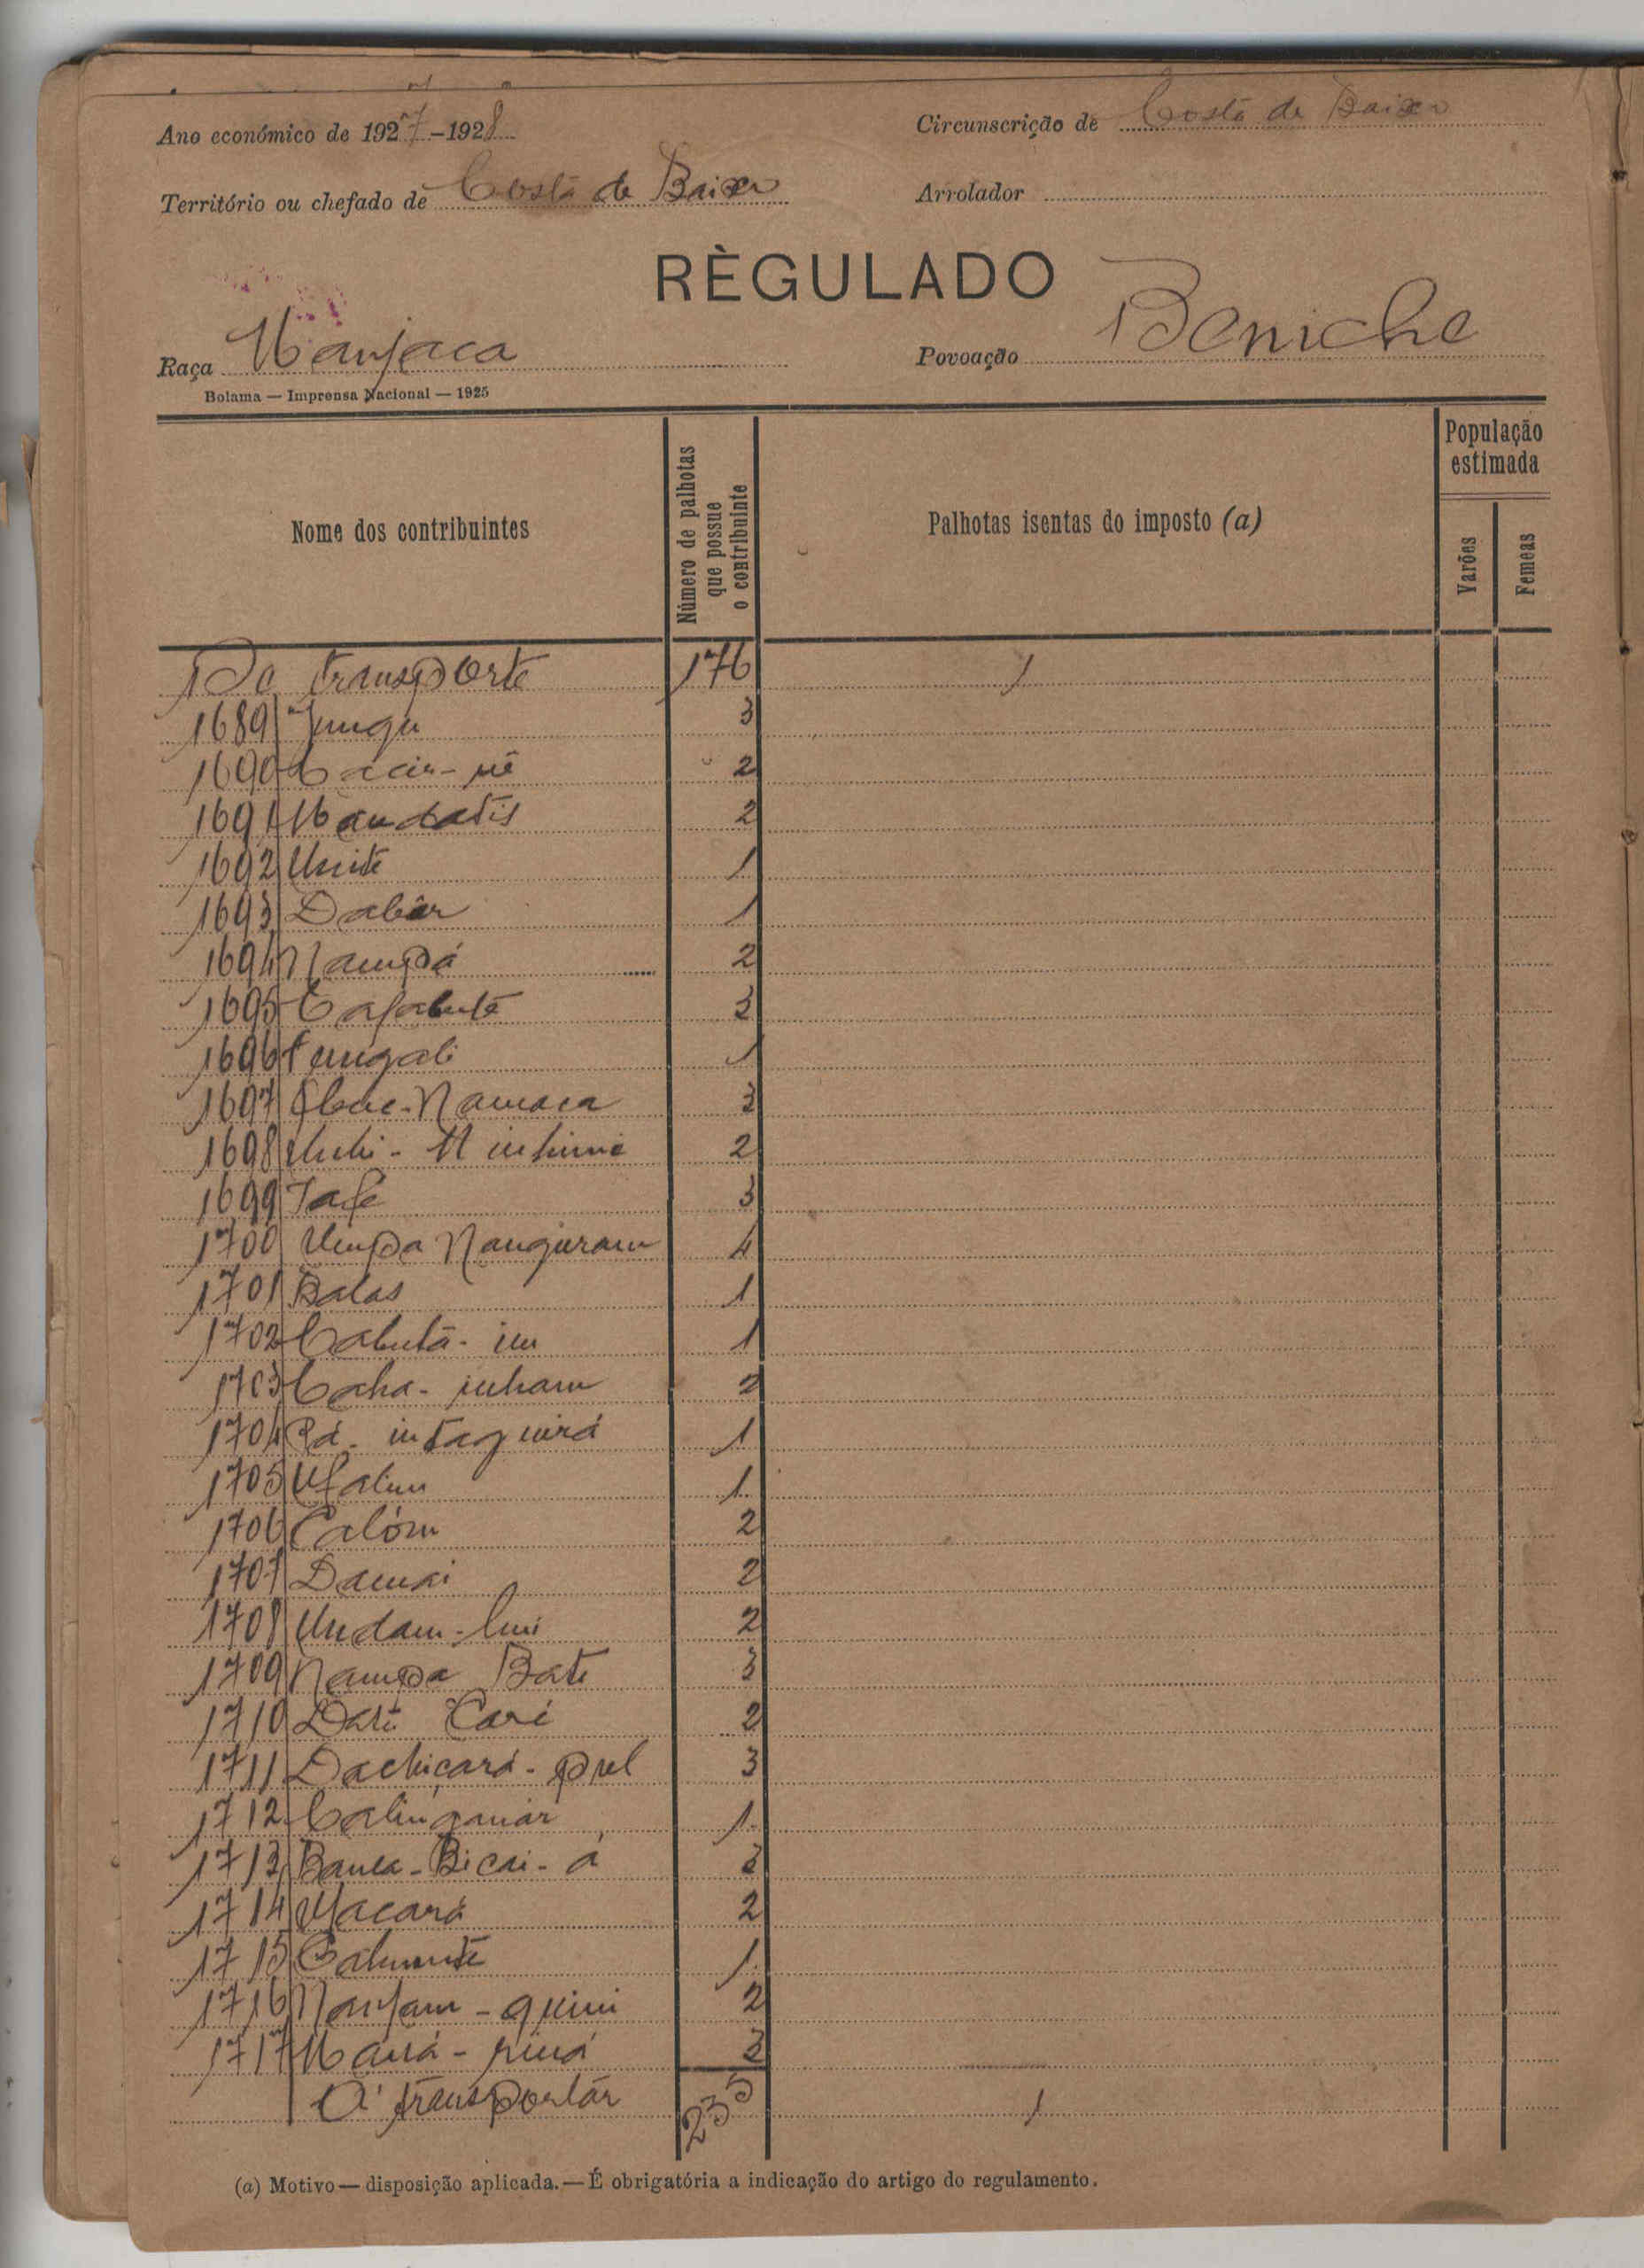 Ano económico de 1927-1928
Circunscrição de Costa de Baixo
Território ou chefado de Costa de Baixo
Arrolador
RÈGULADO
Raça Manjaca
Povoação Beniche
Bolama — Imprensa Nacional — 1925
Nome dos contribuintes
Número de palhotas que possue o contribuinte
Palhotas isentas do imposto (a)
População estimada
Varões
Femeas
De transporte 176 1
1689 3
1690 2
1691 2
1692 Unite 1
1693 Dabâr 1
1694 Nampá 2
1695 Cafabutê
1696 1
1697 3
1698 2
1699 Tafe 3
1700 Umpa Nanguram 4
1701 Balas 1
1702 Cabutã-im 1
1703 Caha-inham 2
1704 Pá-intaquirá 1
1705 Ufalim 1
1706 Calóm 2
1707 Damai 2
1708 Undam-lui 2
1709 Nampa Bate 3
1710 Dati Cari 2
1711 Dachicará-pul 3
1712 1
1713 Banca-Bicai-á
1714 Macará 2
1715 1
1716 Manjam-quini 2
1717
A transportár 235 1
(a) Motivo — disposição aplicada. — É obrigatória a indicação do artigo do regulamento.